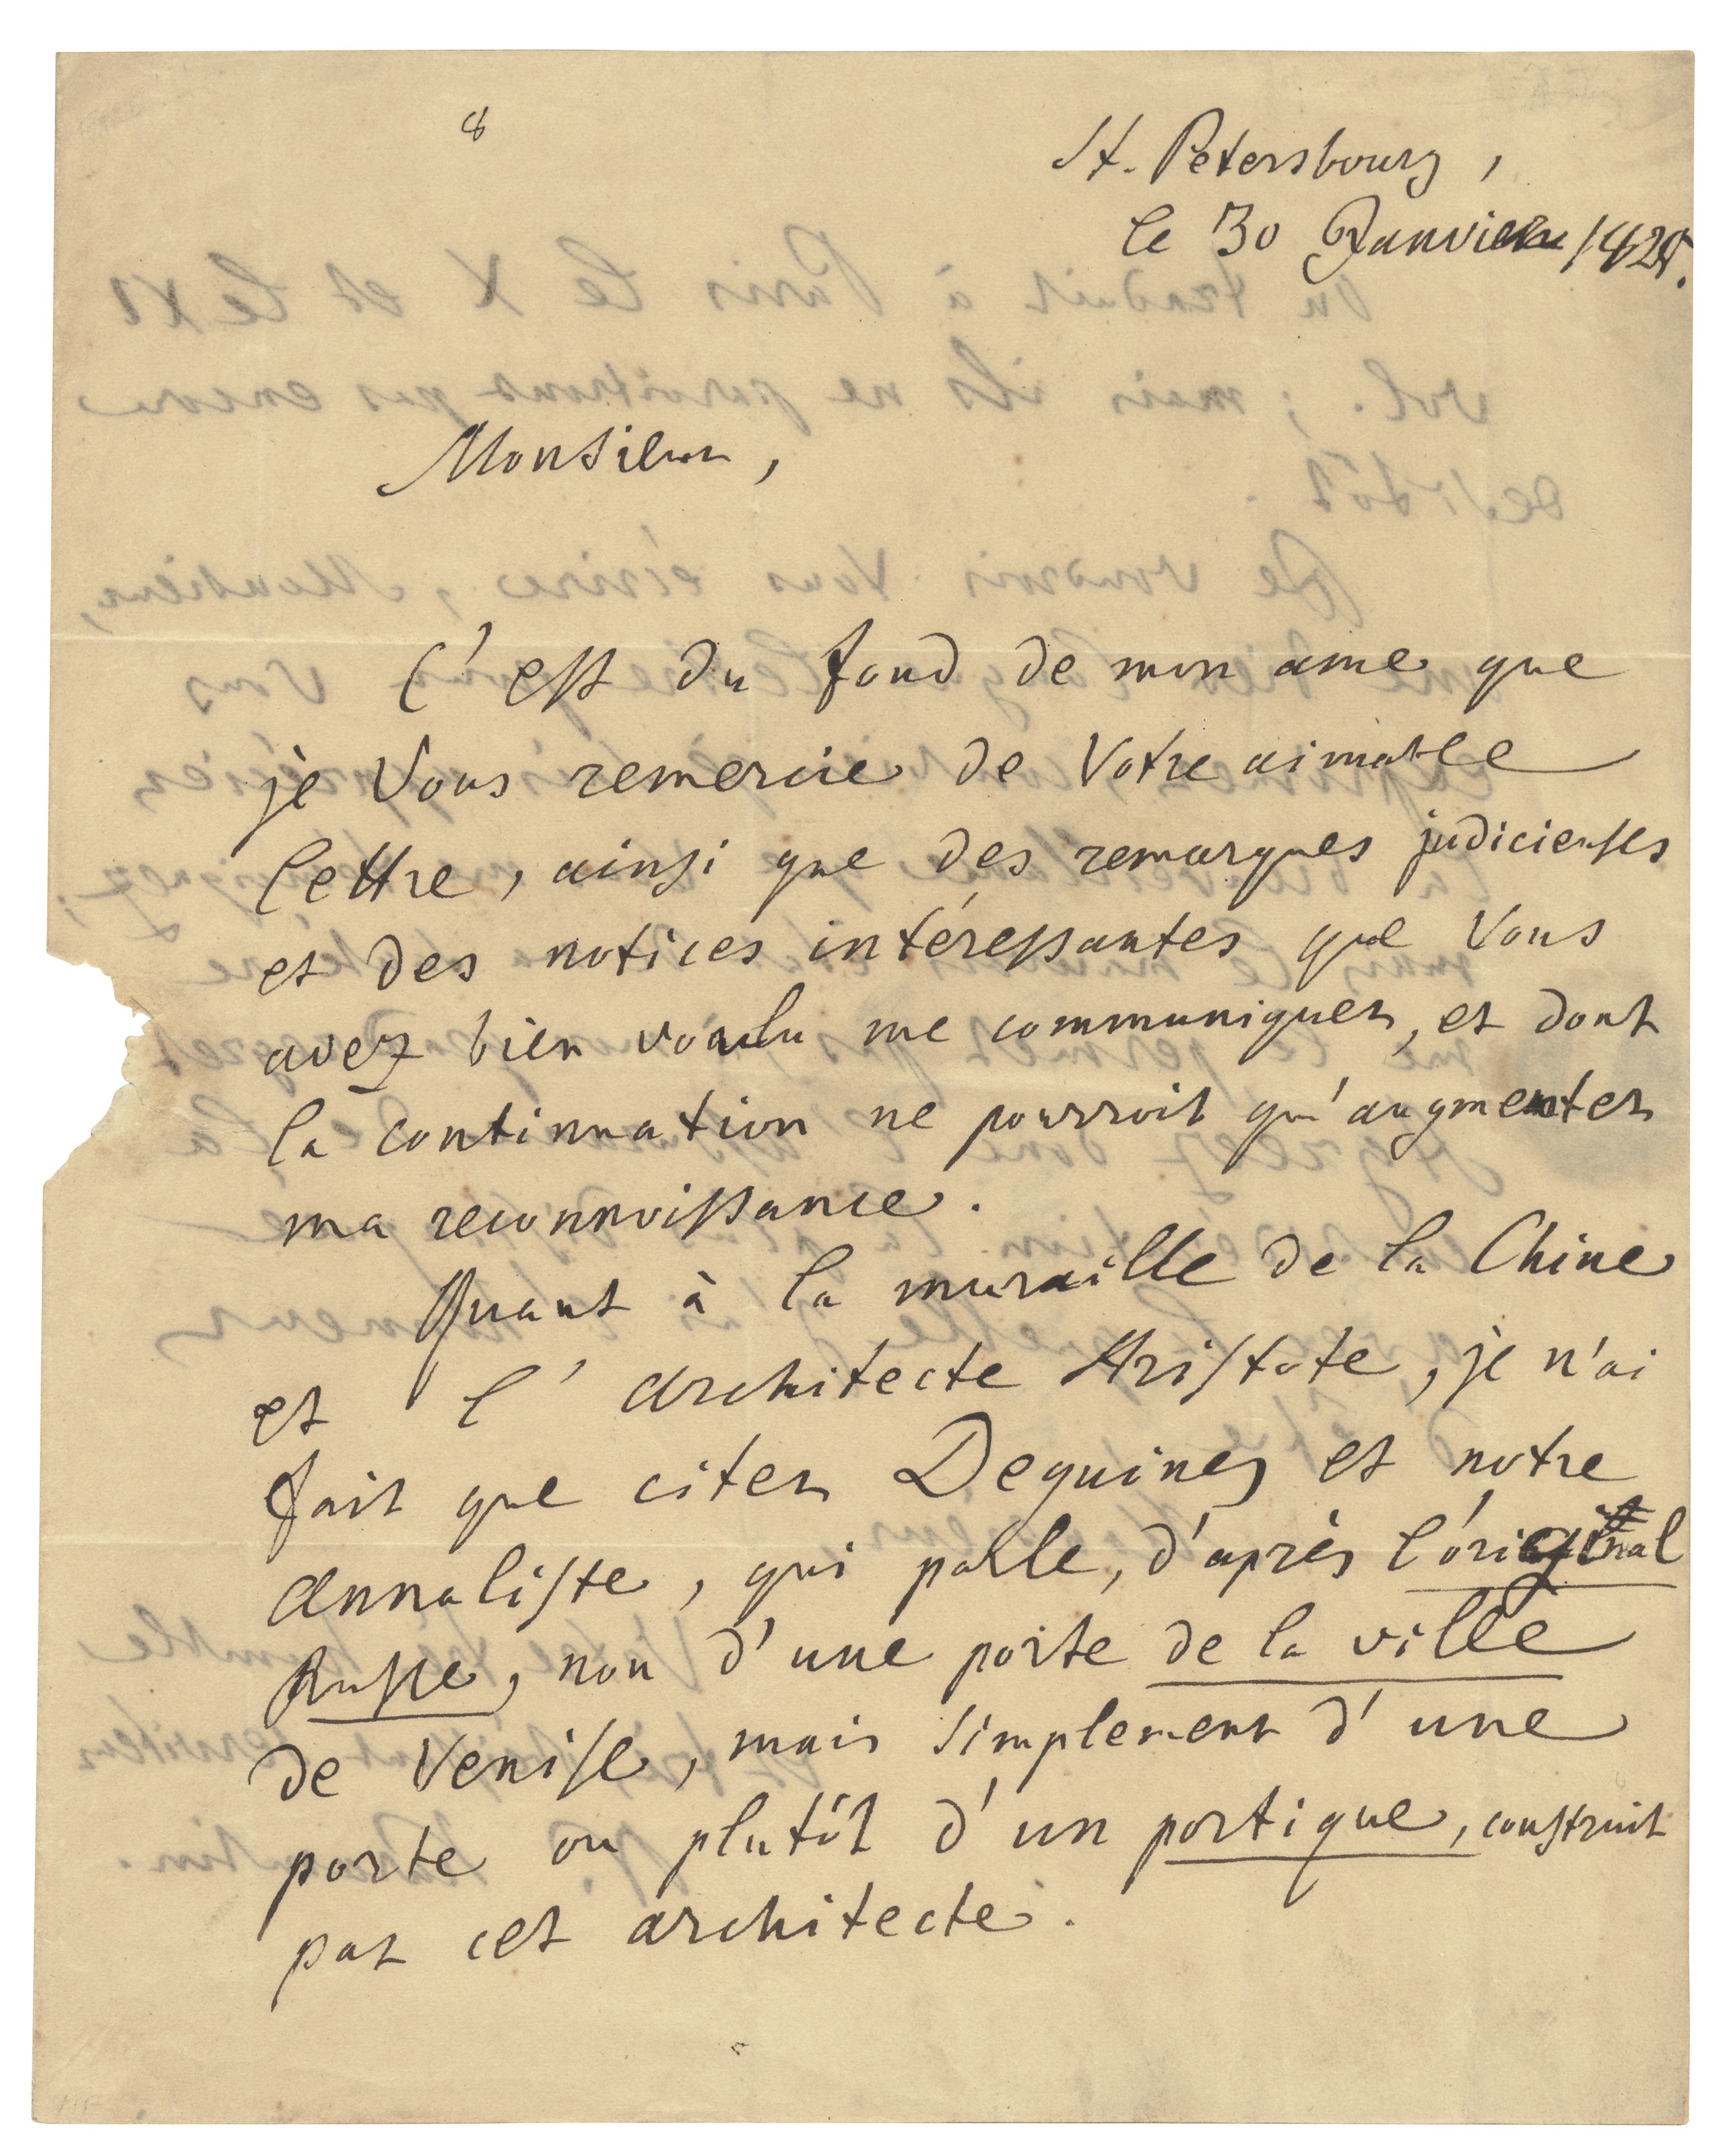 8
St. Petersbourg,
le 30 Janvier 1825.
Monsieur,
C'est du fond de mon ame que
je Vous remercie de Votre aimable
lettre, ainsi que des remarques judicieuses
et des notices intéressantes que Vous
avez bien voulu me communiquer, et dont
la continuation ne pourroit qu'augmenter
ma reconnoissance.
Quant à la muraille de la Chine
et l'architecte Aristote, je n'ai
fait que citer Deguines et notre
annaliste, qui parle, d'après l'original
Russe, non d'une porte de la ville
de Venise, mais simplement d'une
porte ou plutôt d'un portique, construit
par cet architecte.